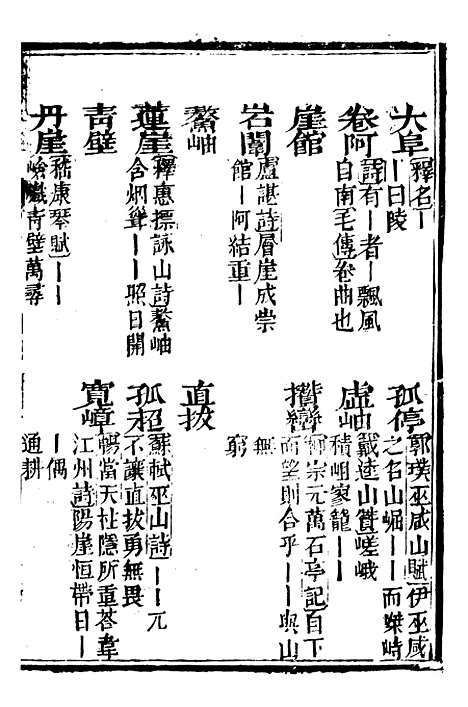 大阜
釋名丨
丨曰陵
卷阿
詩有丨者丨飄風
自南毛傳卷曲也
崖館
岩闈
盧諶詩層崖成崇
館丨阿結重丨
鰲岫
蓮崖
釋惠摽詠山詩鰲岫
含烟聳丨丨照日開
青壁
丹崖
嵇康琴賦丨丨
嶮巇青壁萬尋
孤停
郭璞巫咸山賦伊巫咸
之名山崛丨丨而桀峙
虛岫
戴逵山贊嵯峨
積岨寥籠丨丨
攢巒
柳宗元萬石亭記自下
而望則合乎丨丨與山
無
窮
直拔
孤招
蘇軾巫山詩丨丨元
不讓直拔勇無畏
寬嶂
暢當天柱隱所重荅韋
江州詩陽崖恒帶日丨
丨偶
通耕